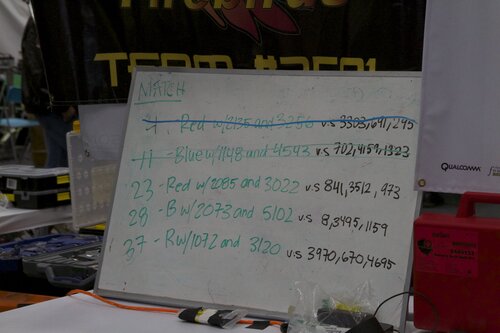 MATCH
4. Red w/2135 and 3256 v.s 3303, 691, 295
11 - Blue w/1148 and 4543 v.s 702, 4159, 1323
23 - Red w/2085 and 3022 v.s 841, 3512, 973
28 - B w/2073 and 5102 v.s 8, 3495, 1159
37 - R w/1072 and 3120 v.s 3970, 670, 4695
QUALCOMM